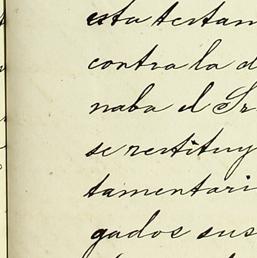 esta testam
contra la d
naba el Sr
se restituy
tamentari
gados sus